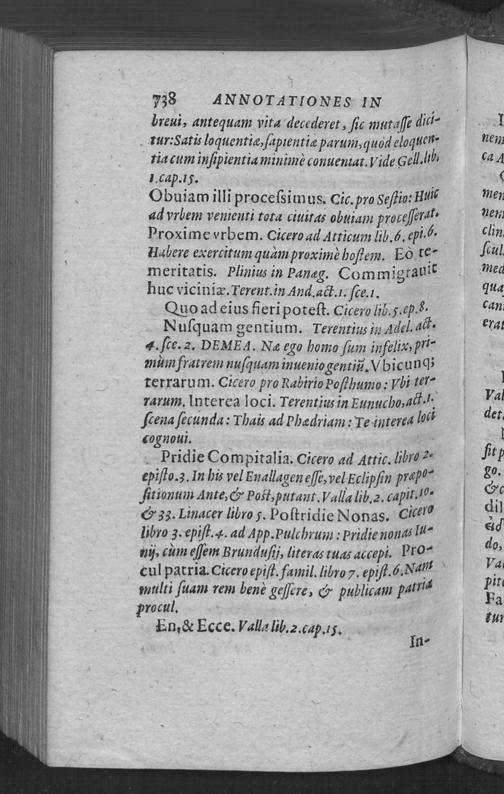 738 ANNOTATIONES IN
breui, antequam vita decederet, sic mutasse dici-
tur: Satis loquentiæ, sapientiæ parum, quòd eloquen-
tia cum insipientia minimè conuentat. Vide Gell. lib.
1. cap. 15.
Obuiam illi processimus. Cic. pro Sestio: Huic
ad vrbem venienti tota ciuitas obuiam processerat.
Proxime vrbem. Cicero ad Atticum lib. 6. epi. 6.
Habere exercitum quàm proximè hostem. Eò te-
meritatis. Plinius in Panæg. Commigrauit
huc viciniæ. Terent. in And. act. 1. sce. 1.
Quo ad eius fieri potest. Cicero lib. 5. ep. 8.
Nusquam gentium. Terentius in Adel. act.
4. sce. 2. DEMEA. Næ ego homo sum infelix, pri-
mùm fratrem nusquam inuenio gentiū. Vbicunq;
terrarum. Cicero pro Rabirio Posthumo: Vbi ter-
rarum. Interea loci. Terentius in Eunucho, act. 1.
scena secunda: Thais ad Phædriam: Te interea loci
cognoui.
Pridie Compitalia. Cicero ad Attic. libro 2.
episto. 3. In his vel Enallagen esse, vel Eclipsin præpo-
sitionum Ante, & Post, putant. Valla lib. 2. capit. 10.
& 33. Linacer libro 5. Postridie Nonas. Cicero
libro 3. epist. 4. ad App. Pulchrum: Pridie nonas Iu-
nij, cùm essem Brundusij, literas tuas accepi. Pro-
cul patria. Cicero epist. famil. libro 7. epist. 6. Nam
multi suam rem benè gessere, & publicam patria
procul.
En, & Ecce. Valla lib. 2. cap. 15.
In-